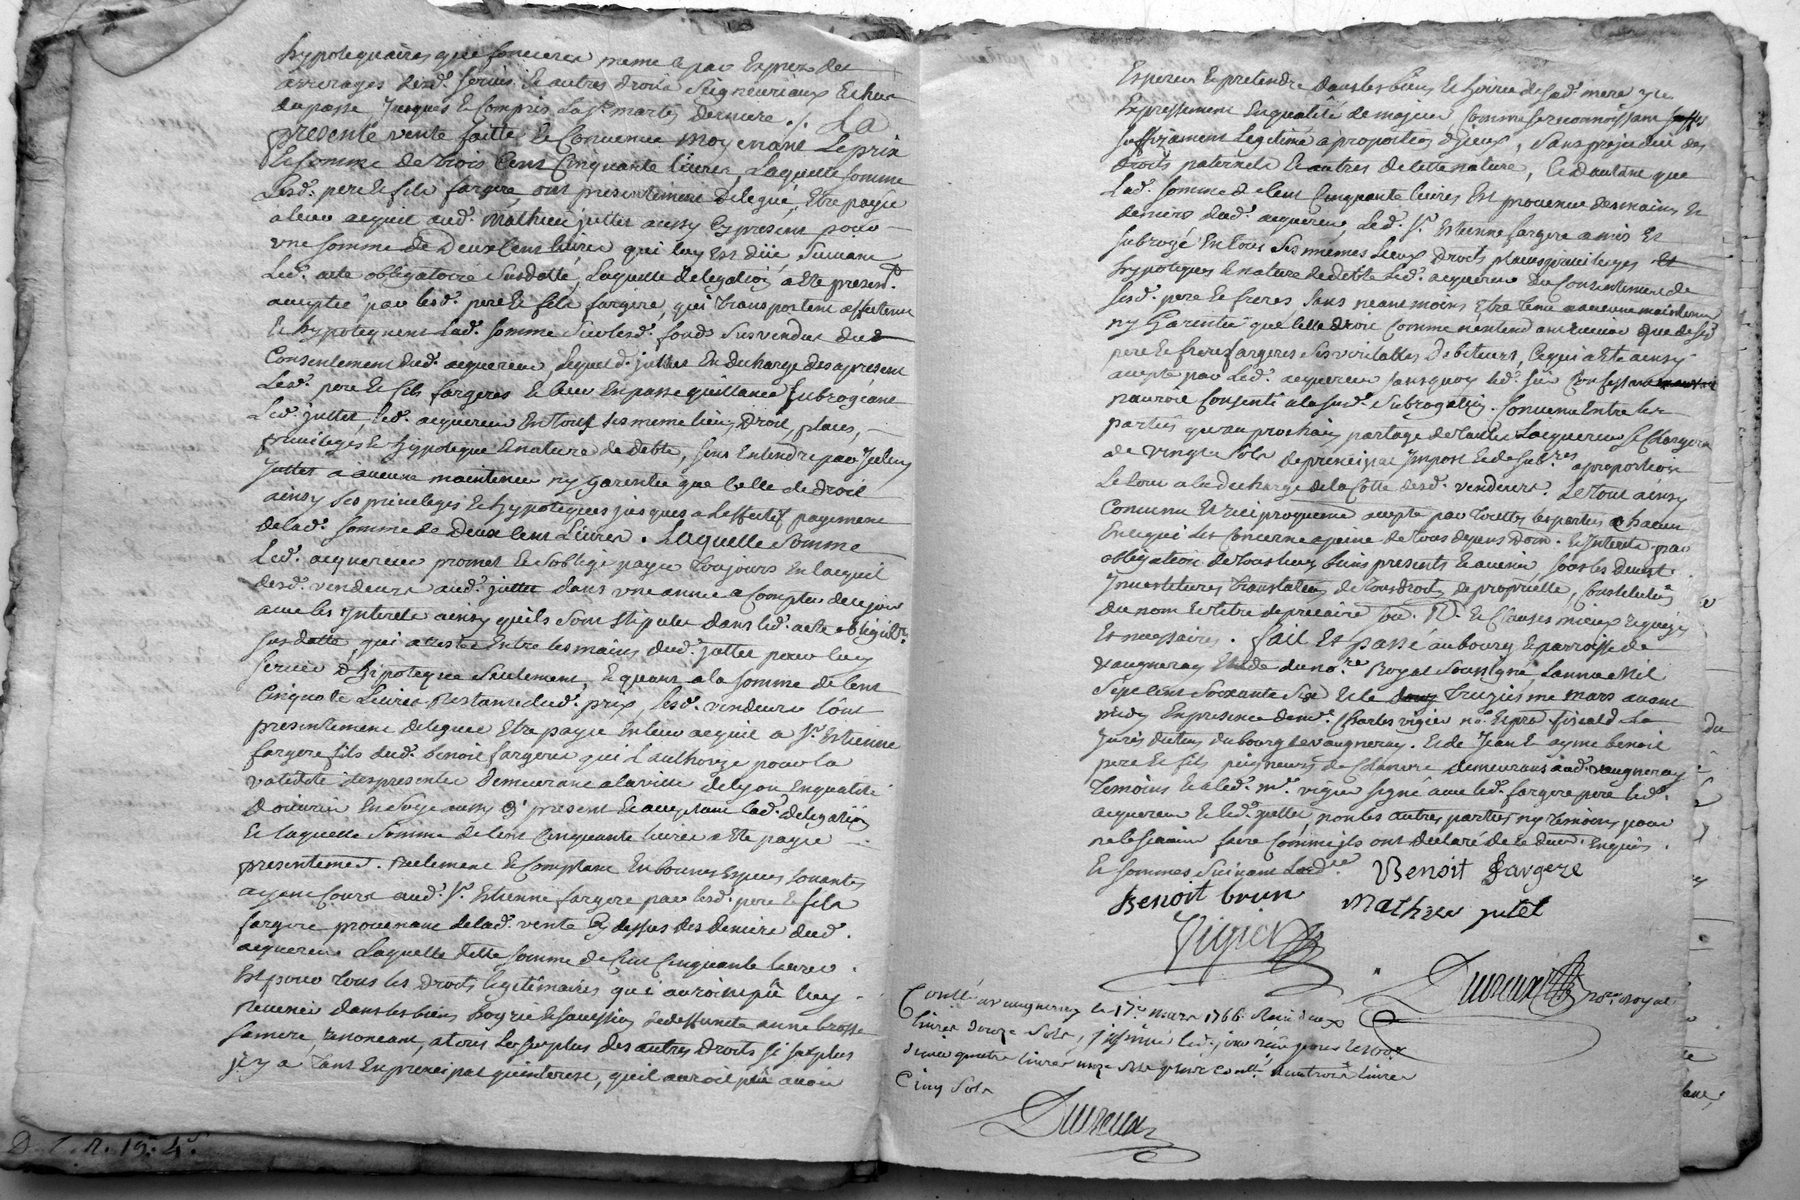 hypotequaires que foncieres meme a pur Exprez des
arrerages desd. servis Et autres droits Seigneuriaux Echus
du passé jusques Et Compris la St martin derniere ./. La
presente vente faitte Et Convenue moyenant Le prix
Et Somme de trois Cent Cinquante livres, Laquelle somme
Lesd. pere Et fils fargere ont presentement delegué, Etre payée
a leur acquit aud. Mathieu juttet aussy Cy present pour
une somme de Deux Cens livres qui luy Est düe Suivant
Led. acte obligatoire Susdatté, Laquelle delegation a Eté presentt.
acceptée par lesd. pere Et fils fargere, qui transportent affectent
Et hypotequent Lad. somme Sur lesd. fonds Susvendus du
Consentement dud. acquereur, lequel d. juttet En decharge des a present
Lesd. pere Et fils fargeres Et leur En passe quittance Subrogeant
Led. juttet, led. acquereur En tous ses meme lieu, droit, places,
privileges Et hypoteque Et nature de debte, sans Entendre par Icelluy
Juttet a aucune maintenue ny garentie que Celle de droit
ainsy Ses privileges Et hypoteques jusques a Leffectif payement
de lad. somme de Deux Cens Livres. Laquelle Somme
Led. acquereur promet Et Soblige payer toujours En lacquit
desd. vendeurs aud. juttet dans une année a Compter de ce jour
avec les Interets ainsy quils Sont Stipulés dans led. acte obligatre.
susdatté, qui a resté Entre les mains dud. juttet pour luy
servir D'hipoteque Seulement, Et quant a la somme de Cent
Cinquante Livres Restante dud. prix, lesd. vendeurs lont
presentement deleguée Etre payée En leur acquit a Sr. Estienne
fargere fils dud. benoit fargere qui L'authorize pour la
validité des presentes Demeurant a la ville de Lyon En qualité
D'ouvrier En Soye aussy Cy present Et acceptant lad. delegation
Et laquelle Somme de Cent Cinquante livres a Eté payée
presentement. reellement Et Comptant En bonnes Especes Sonantes
ayant Cours aud. Sr. Estienne fargere par lesd. pere Et fils
fargere provenant de lad. vente Cy dessus des deniers dud.
acquereur Laquelle ditte somme de Cent Cinquante livres
Est pour tous les droits legitimaires qui auroint pû luy
revenir dans les biens hoyrie Et Succession de deffunte anne brosse
sa mere, renoncant, a tous les surplus des autres droits si surplus
il y a tant En principal qu'interest, quil auroit pû avoir
Esperer Et pretendre dans les biens Et hoirie de sad. mere
Expressement En qualité de majeur Comme se reconnoissant
suffisament Legitimé a proportion dyceux, Sans prejudice des
droits paternels Et autres de cette nature, Et dautant que
Lad. somme de Cent Cinquante livres Est provenue des mains Et
deniers dud. acquereur, Led. Sr. Estienne fargere a mis Et
subrogé En tous Ses mêmes Lieux droits places privileges Et
hypoteques Et nature de debte led. acquereur du Consentement de
sesd. pere Et freres Sans neanmoins Etre tenu a aucune maintenue
ny Garentie que Celle de droit Comme n'entend
pere Et frere fargeres Ses veritables debiteurs, Ce qui a Eté ainsy
accepté par Led. acquereur sans quoy led.
n'auroit Consenti a la susd. Subrogation. Convenu Entre les
parties qu'au prochain partage de tailles Lacquereur Se Chargera
de vingt Sols de principal Impot Et de Subres. a proportion
Le tout a la decharge de la Cotte desd. vendeurs. Le tout ainsy
Convenu Et reciproquement accepté par touttes les parties Chacun
En ce qui les Concerne a peine de tous depens Dom. Et Interets par
obligation de tous leurs biens presents Et avenir, sous les devest.
Investitures translation de tous droits de proprietté, Constitution
du nom Et titre de precaire Et Clauses mieux Requizes
Et necessaires. Fait Et passé au bourg Et parroisse de
vaugneray Etude du nore. Royal Soussigné Lanné Mil
Sept Cent Soixante Six Et le treizieme mars avant
midy En presence de me. Charles vigier nore. Et pre. fiscal de La
Jurisdiction du bourg de vaugneray. Et de Jean Et ayme benoit
pere Et fils peigneurs de Chanvre demeurants aud. vaugneray
temoins Et led. me. vigier signé avec led. fargere pere led.
acquereur Et led. juttet non les autres parties ny temoins pour
ne le scavoir faire Comme ils ont declaré de ce duem. Enquis
Et sommés Suivant Lord.ce
Benoit Fargere
Benoit brun Mathieu jutet
Vigier
Dumeux nore. Royal
Conllé a vaugneray le 17e mars 1766 Reçu deux
livres douze Sols, insinué led. jour
livres onze sols
Cinq Sols
Dumeux
D. C. R. 19. 4s.